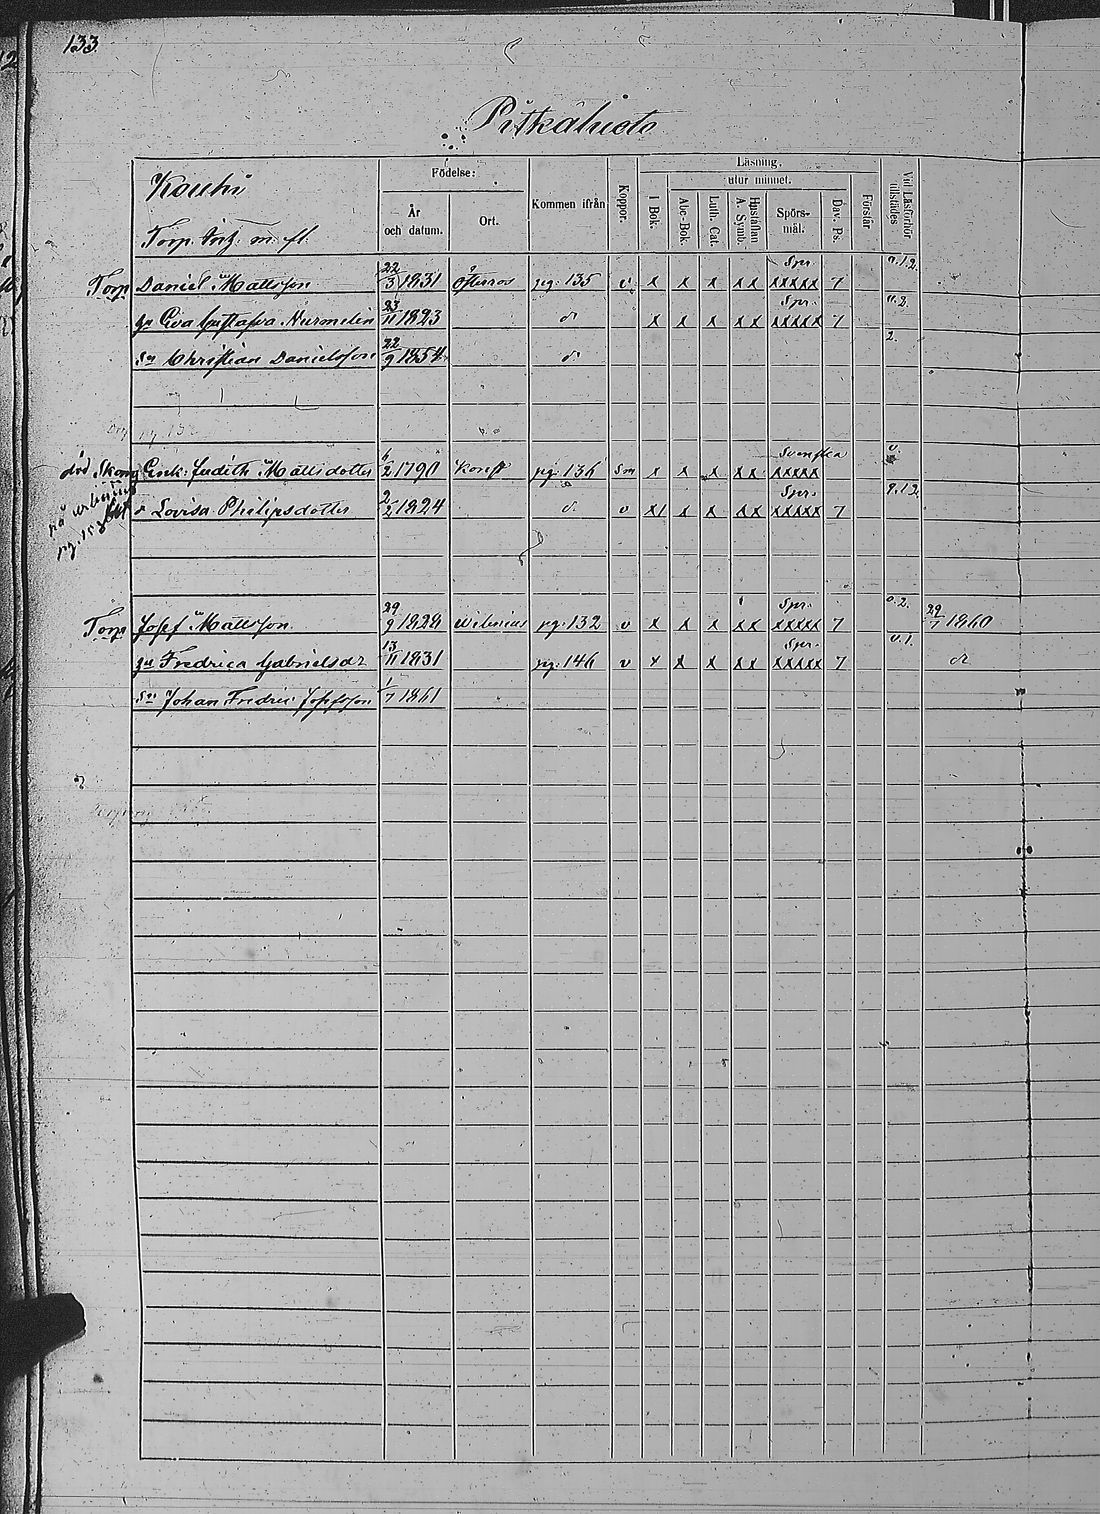 133.
Pitkälueto
Kouhi
Torp. Inh: m: fl.
Födelse:
År och datum.
Ort.
Kommen ifrån
Koppor.
Läsning.
utur minnet.
I Bok.
Abc-Bok.
Luth. Cat.
Hustaflan A. Symb.
Spörs-mål.
Dav. Ps.
Förstår
Vid Läsförhör tillstädes
Torp Daniel Mattsson 22/3 1831 Österros pg. 135 v x x x xx Spr. xxxxx 7 0.1.2.
hu Eva Gustafva Nurmelin 23/11 1823 do x x x xx Spr. xxxxx 7 0.2.
son Christian Danielsson 22/9 1854 do 2.
död Enk: Judith Mattsdotter 6/2 1790 pg. 136 sm x x x xx Svenska xxxxx 0.
Lovisa Philipsdotter 2/2 1824 d. v x1 x x xx Spr. xxxxx 7 9.12.
Torp Josef Mattsson 29/9 1828 pg. 132 v x x x xx Spr. xxxxx 7 0.2. 29/7 1860
hu Fredrica Gabrielsdr 13/11 1831 pg. 146 v x x x xx Spr. xxxxx 7 0.1. dr
son Johan Fredric Josefsson 1/7 1861